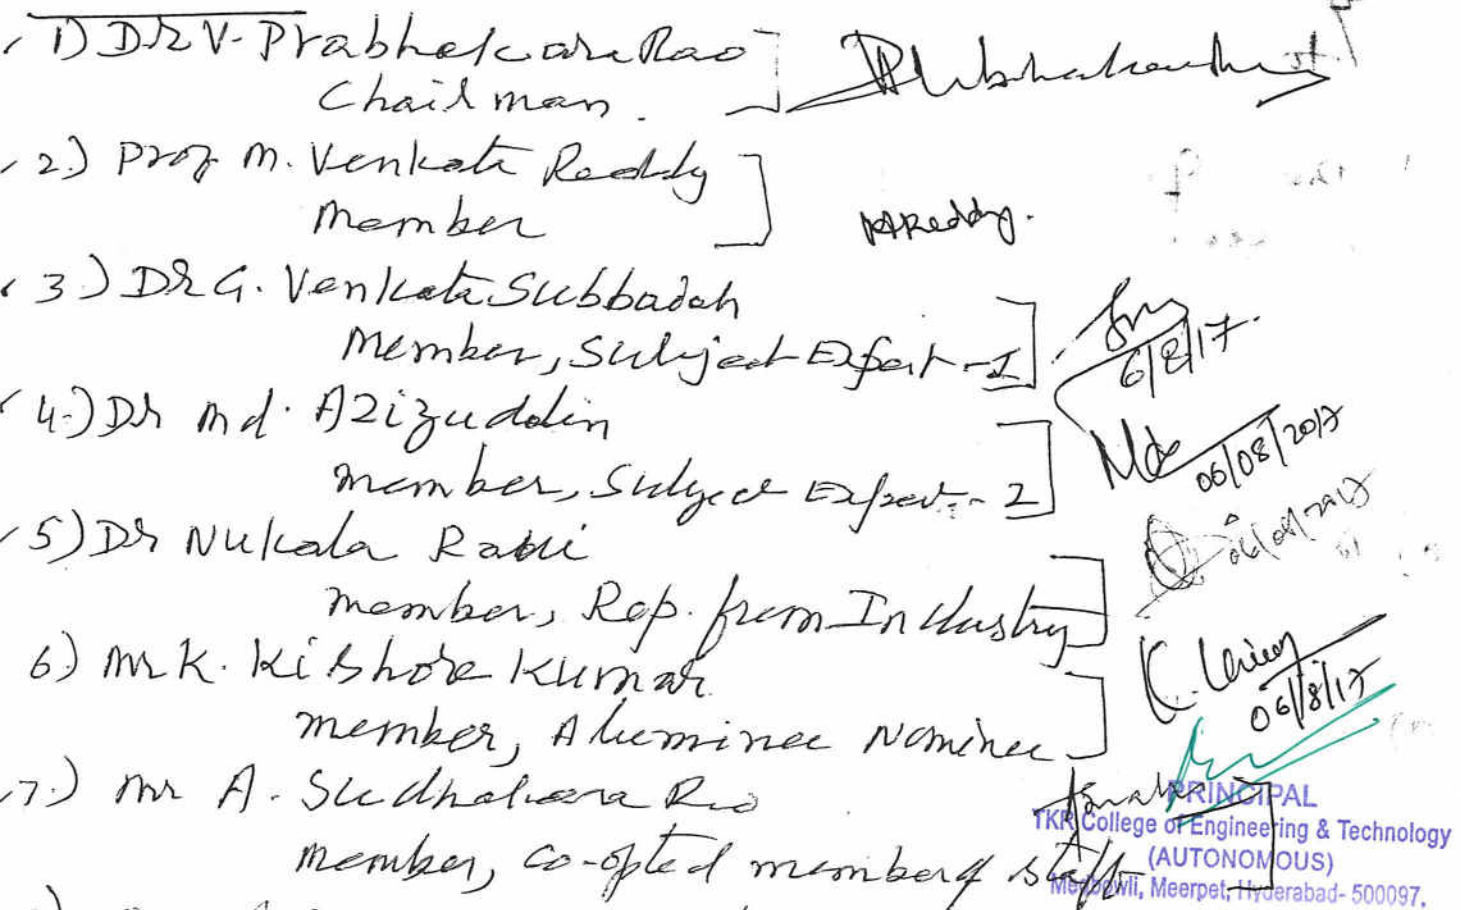 1) Dr V. Prabhakara Rao
Chairman.
2.) Prof M. Venkata Reddy
Member
MReddy.
3) Dr G. Venkata Subbaiah
Member, Subject Expert - 1
6/8/17
4.) Dr Md. Azizuddin
member, Subject Expert - 2
06/08/2017
5) Dr Nukala Ravi
member, Rep. from Industry
06/08/2017
6) Mr K. Kishore Kumar
member, Aluminee Nominee
06/8/17
7.) Mr A. Sudhakara Rao
member, co-opted member of staff
PRINCIPAL
TKR College of Engineering & Technology
(AUTONOMOUS)
Medbowli, Meerpet, Hyderabad- 500097.